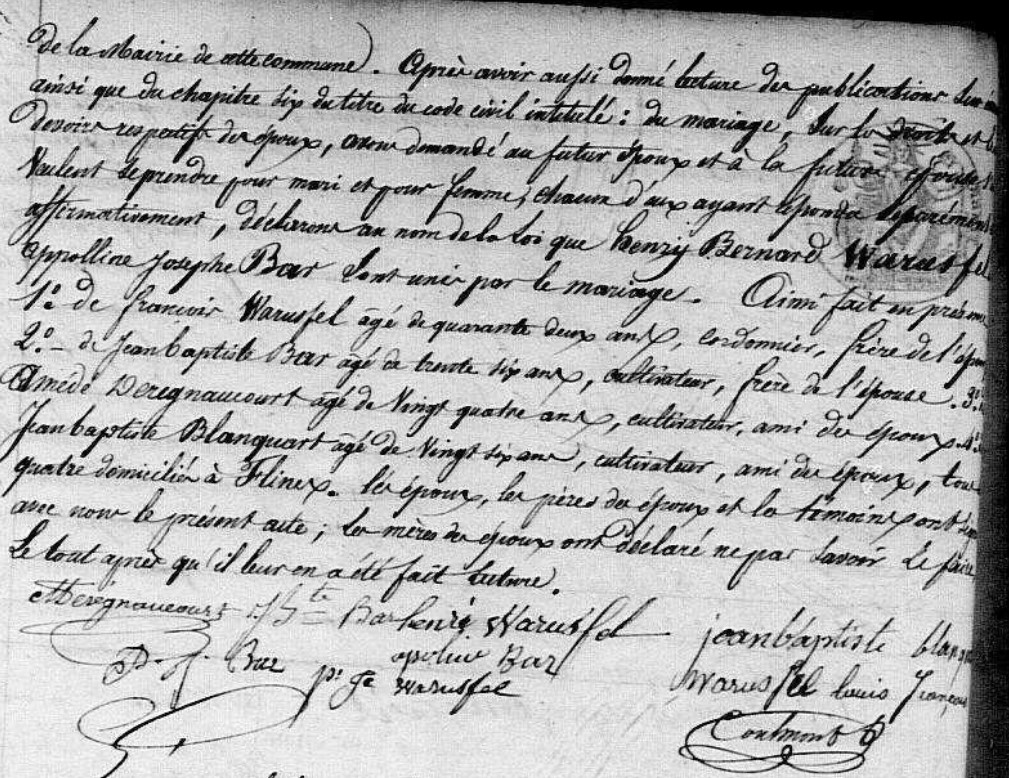 de la Mairie de cette commune). Après avoir aussi donné lecture des publications
ainsi que du chapitre six du titre du code civil intitulé : du mariage, sur les droits et les
devoirs respectifs des époux, avons demandé au futur époux et à la future épouse
veulent se prendre pour mari et pour femme; chacun d'eux ayant répondu séparément
affirmativement, déclarons au nom de la loi que henry Bernard Warusfel
appolline Josephe Bar sont unis par le mariage. Ainsi fait en présence
1° de françois Warusfel agé de quarante deux ans, cordonnier, frère de l'époux
2° de Jeanbaptiste Bar agé de trente six ans, cultivateur, frère de l'épouse. 3°
Amédé Deregnaucourt agé de vingt quatre ans, cultivateur, ami des époux. 4°
Jeanbaptiste Blanquart agé de vingt six ans, cultivateur, ami des époux, tous
quatre domiciliés à Flines. les époux, les pères des époux et les témoins ont signé
avec nous le présent acte; les mères des époux ont déclaré ne pas savoir le faire
le tout après qu'il leur en a été fait lecture.
ADerégnaucourt J Bte Bar henri Warusfel jeanbaptiste blanq
Bar pre Je apoline Bar Warusfel louis françois
Warusfel
Coulmont